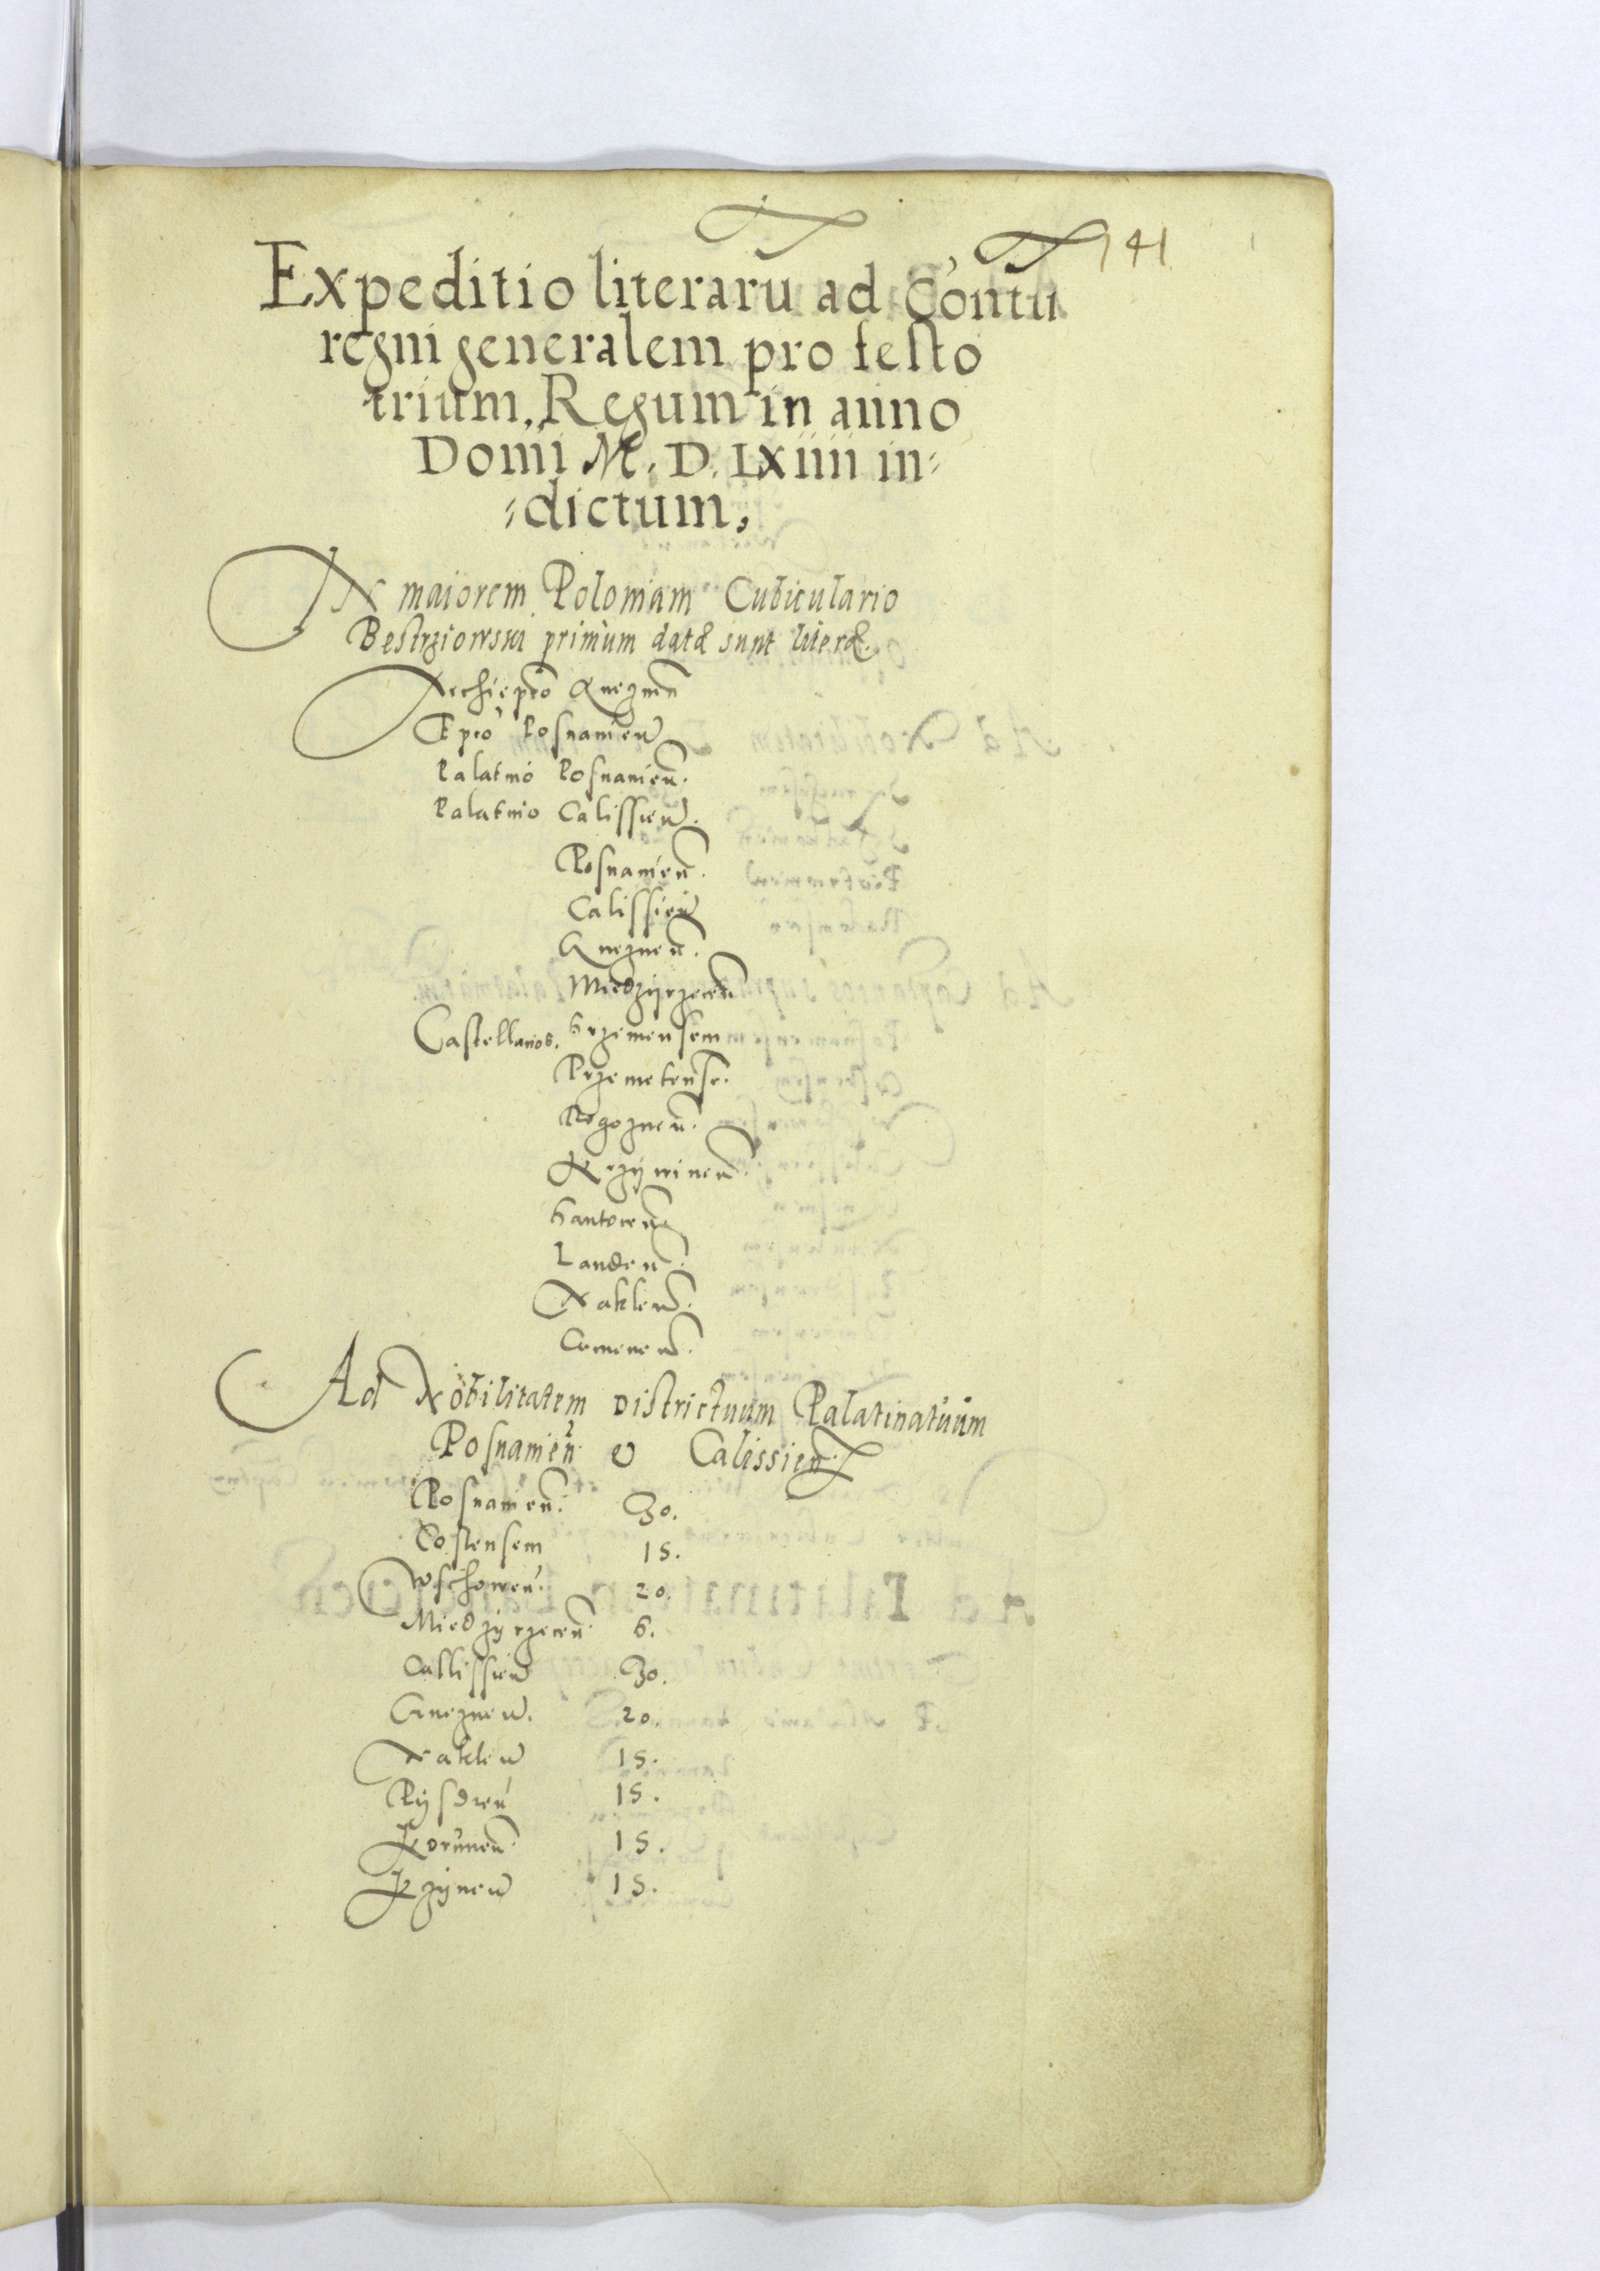 141
Expeditio literarū ad Cōntū
regni generalem pro festo
trium Regum in anno
Domi M. D. LXIIII in=
=dictum,
IN maiorem Poloniam Cubiculario
Bestrziowski primum datę sunt literę.
Archiepco Gneznen̄
Epco Posnanien
Palatino Posnanien̄.
Palatino Calissien.
Posnanien̄.
Calissien
Gneznen̄.
Miedzyrzecen̄
Castellanos. Srzemensem
Przemetense.
Rogoznen̄.
Krzywinen̄.
Santocen̄
Landen̄.
Naklen̄.
Camenen̄.
Ad Nobilitatem Districtuum Palatinatuum
Posnanien̄ & Calissien
Posnanien̄. 30.
Costensem 15.
Wschowen. 20.
Miedzyrzecen̄ 6.
Callissien 30.
Gneznen. 20.
Naklen 15.
Pysdren 15.
Koninen̄ 15.
Kzynen 15.